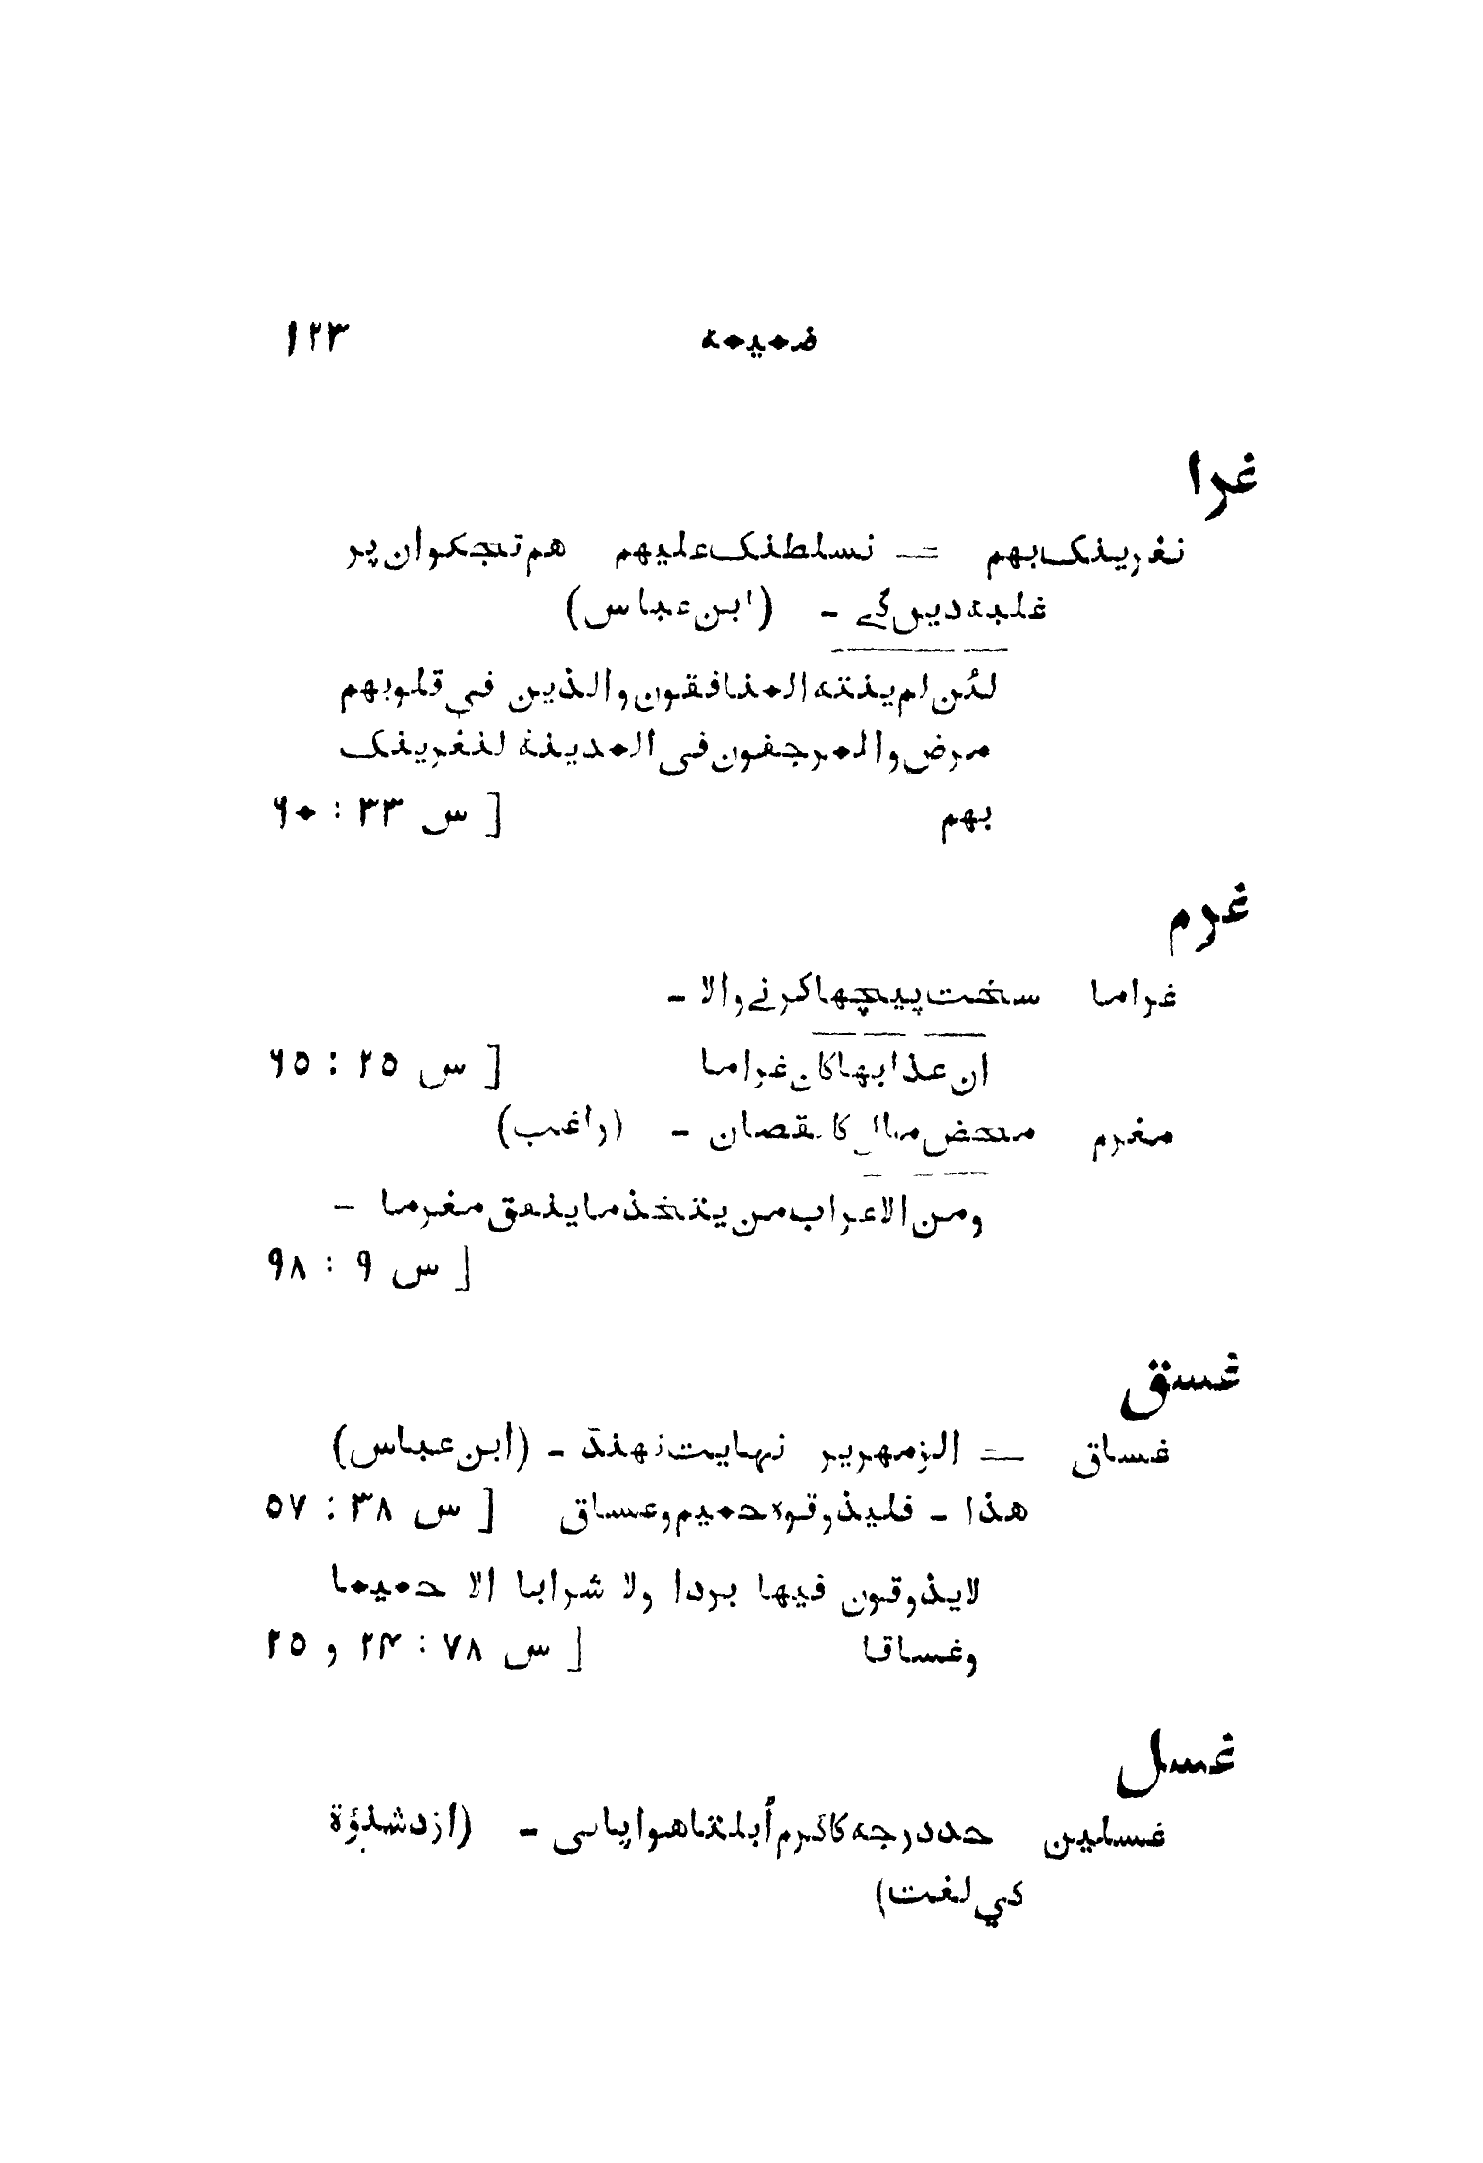 ضمیمہ ۱۲۳
غرا
نغرینک بهم = نسلطنک علیهم هم تجکو ان پر
غلبہ دیں گے - (ابن عباس)
لئن لم ینته المنافقون والذین فی قلوبهم
مرض والمرجفون فی المدینة لنغرینک
بهم [ س ۳۳ : ۶۰
غرم
غراما سخت پیچها کرنے والا -
ان عذابها کان غراما [ س ۲۵ : ۶۵
مغرم محض مال کا نقصان - (راغب)
ومن الاعراب من یتخذ ما ینفق مغرما -
[ س ۹ : ۹۸
غسق
غساق = الزمهریر نهایت ٹهنڈ - (ابن عباس)
هذا - فلیذوقوه حمیم وغساق [ س ۳۸ : ۵۷
لا یذوقون فیها بردا ولا شرابا الا حمیما
وغساقا [ س ۷۸ : ۲۴ و ۲۵
غسل
غسلین حد درجه کا گرم اُبلتا هوا پانی - (ازد شنؤة
کی لغت)